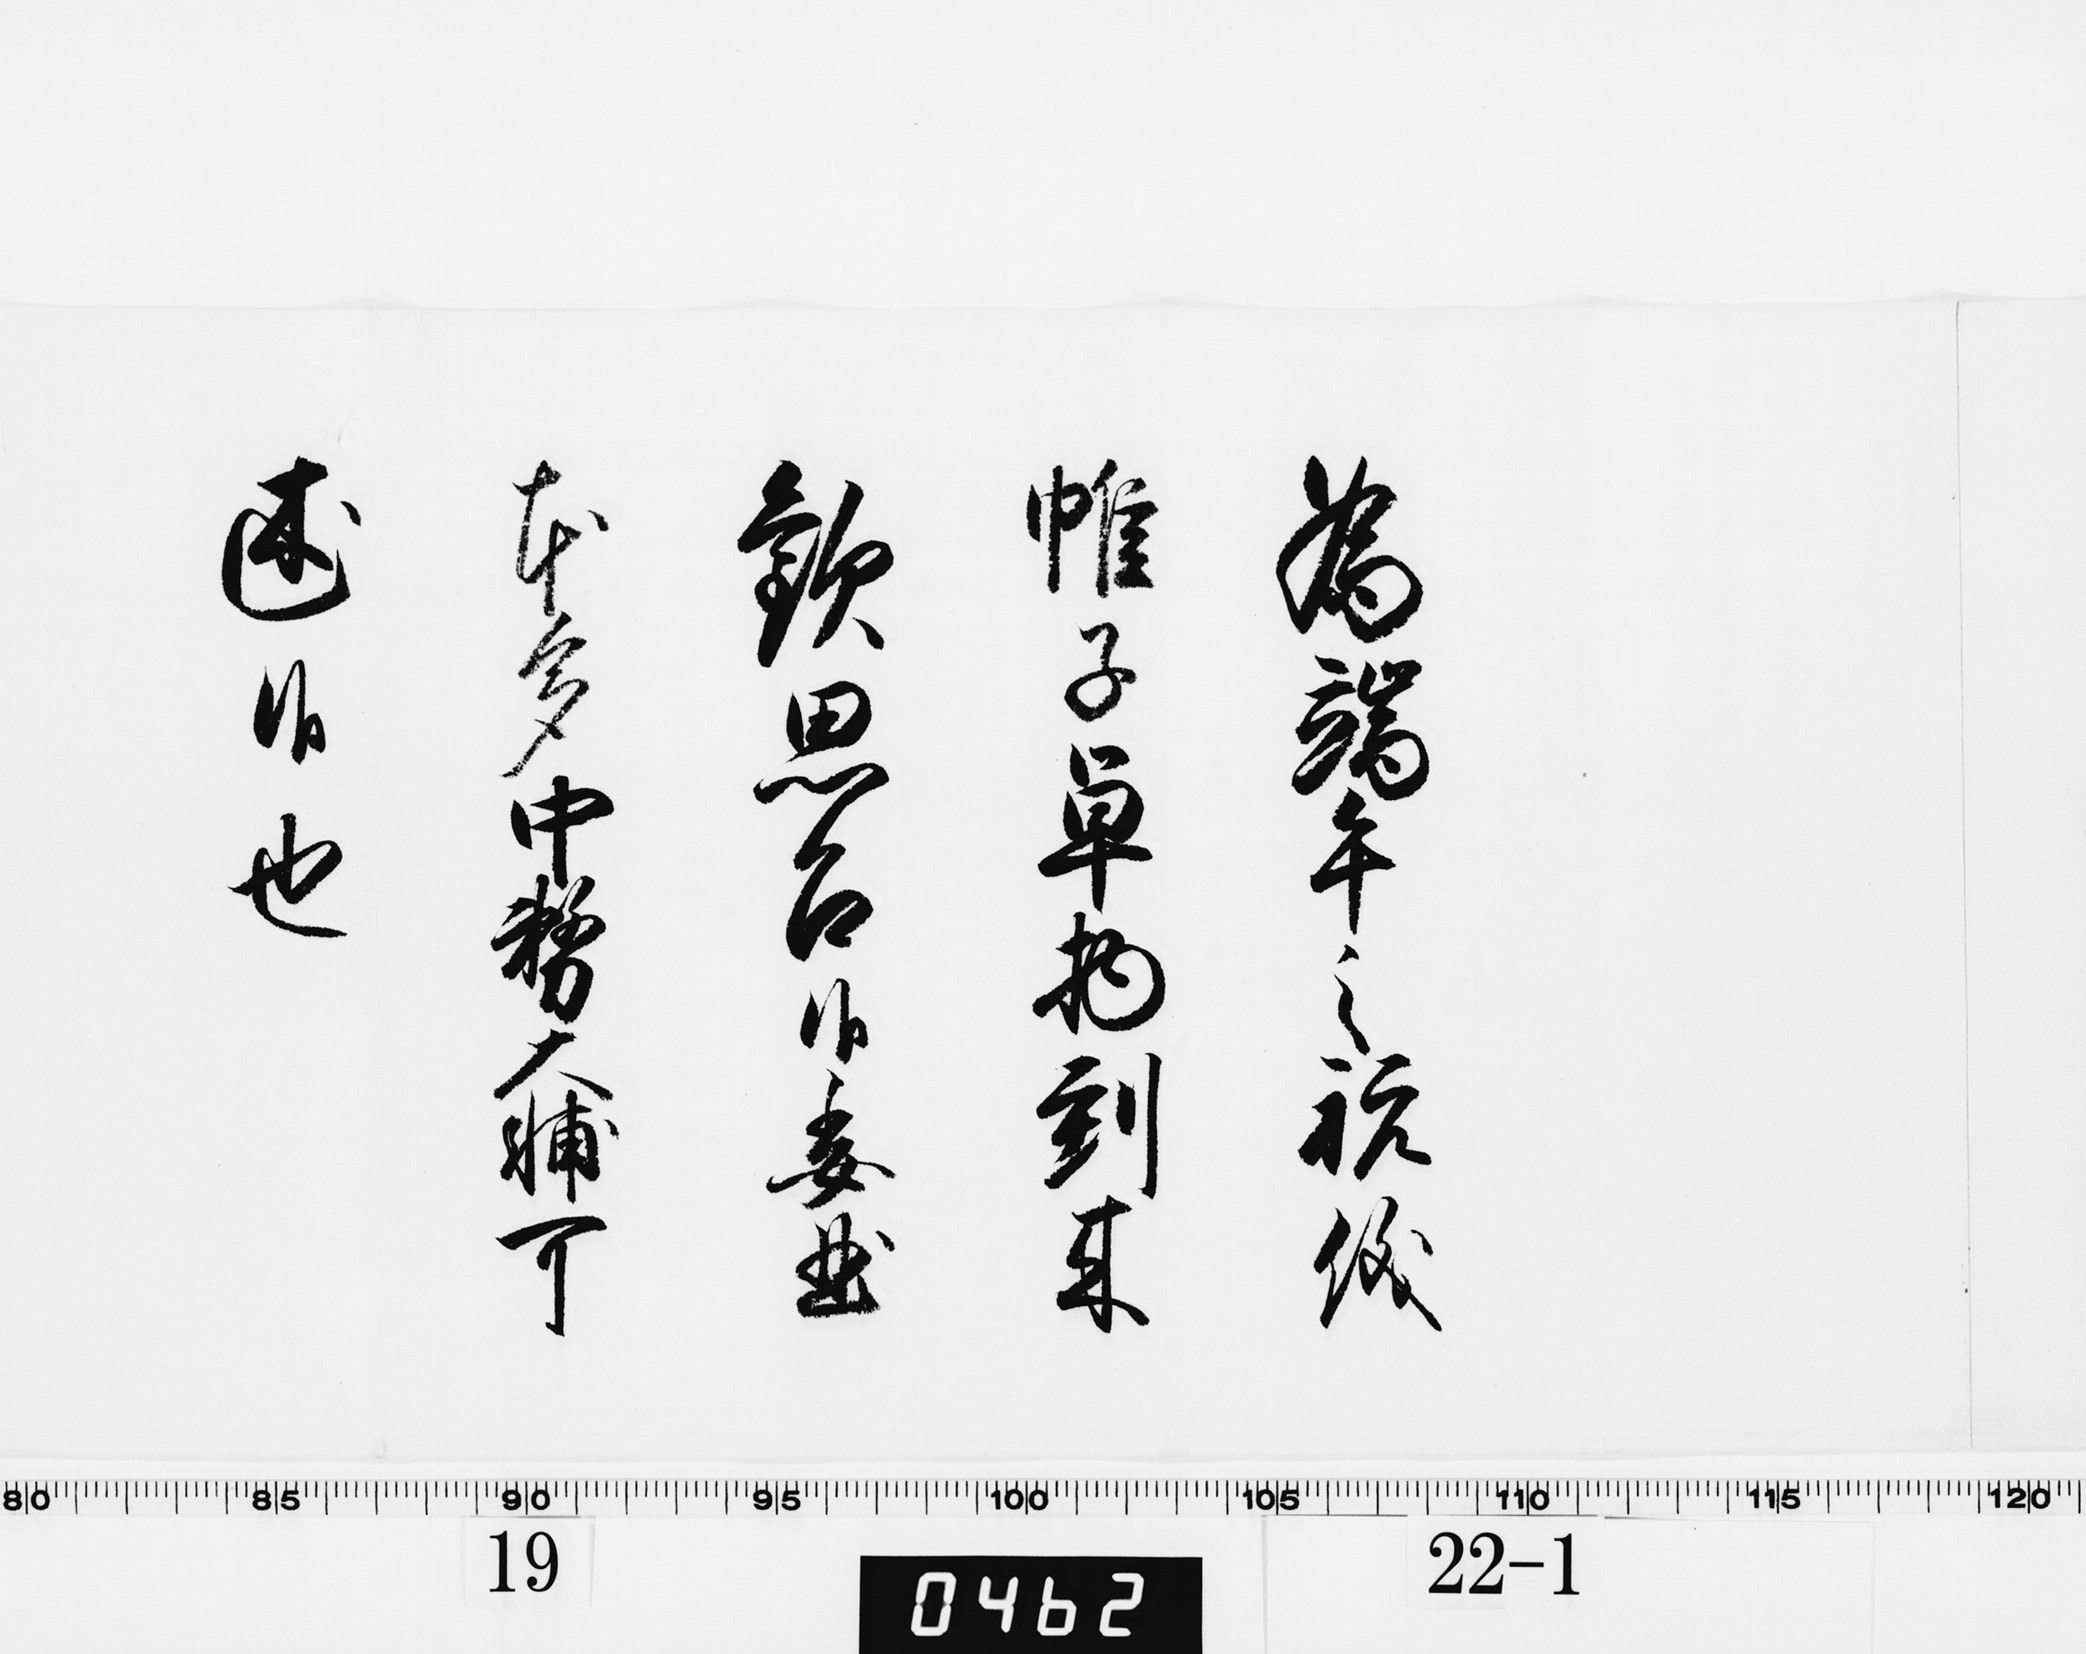 為端午之祝儀
帷子単物到来
歓思召候委曲
本多中務大輔可
述候也
80 85 90 95 100 105 110 115 120
19
22-1
0462